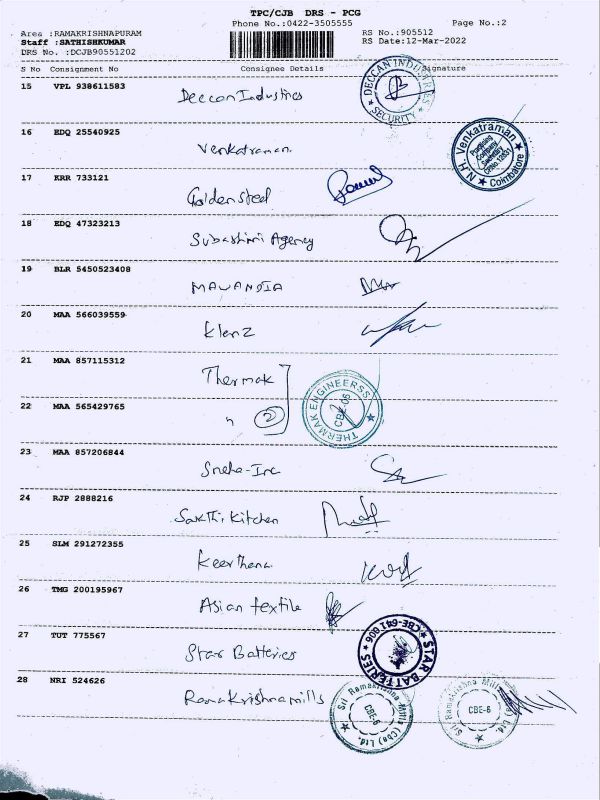 TPC/CJB DRS - PCG
Phone No.:0422-3505555
Page No.:2
Area :RAMAKRISHNAPURAM
Staff :SATHISHKUMAR
DRS No. :DCJB90551202
RS No.:905512
RS Date:12-Mar-2022
S No Consignment No Consignee Details Signature
15 VPL 938611583
Deccan Industries
DECCAN INDUSTRIES
SECURITY
16 EDQ 25540925
Venkatraman
N.H. Venkatraman
Company
Secretary
Coimbatore
17 KRR 733121
Golden steel
18 EDQ 47323213
Subashini Agency
19 BLR 5450523408
MAVANDIA
20 MAA 566039559
Klenz
21 MAA 857115312
Thermak
22 MAA 565429765
" 2
THERMAK ENGINEERSS
CBE-06
23 MAA 857206844
Sneha-Inc
24 RJP 2888216
Sakthi Kitchen
25 SLM 291272355
Keerthana
26 TMG 200195967
Asian textile
27 TUT 775567
Star Batteries
STAR BATTERIES
CBE-641 006
28 NRI 524626
Ramakrishna mills
Sri Ramakrishna Mills (Cbe) Ltd.
CBE-6
Sri Ramakrishna Mills (Cbe) Ltd.
CBE-6